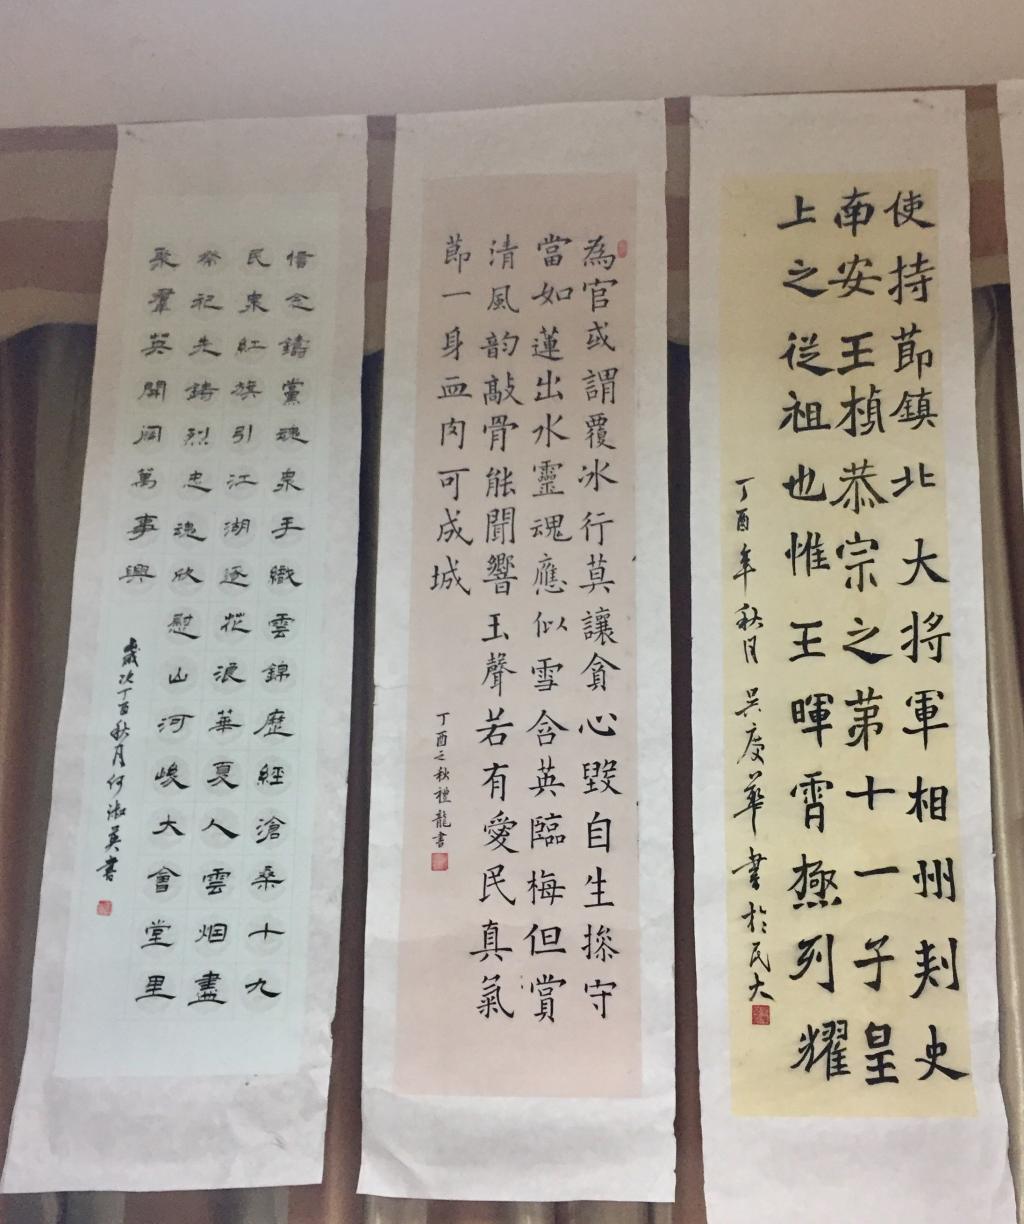 使持莭鎮北大将軍相州刾史
南安王楨恭宗之第十一子皇
上之從祖也惟王暉霄極列耀
丁酉年秋月 吴慶華 書於民大
為官或謂覆冰行莫讓貪心毀自生操守
當如蓮出水靈魂應似雪含英臨梅但賞
清風韵敲骨能聞響玉聲若有愛民真氣
莭一身血肉可成城
丁酉之秋禮龍書
念鑄黨魂衆手織雲錦歷經滄桑十九
民衆紅旗引江湖逐花浪華夏人雲烟盡
祭祀先鑄烈忠魂欣慰山河峻大會堂里
聚羣英開闢萬事興
歲次丁酉秋月何淑英書